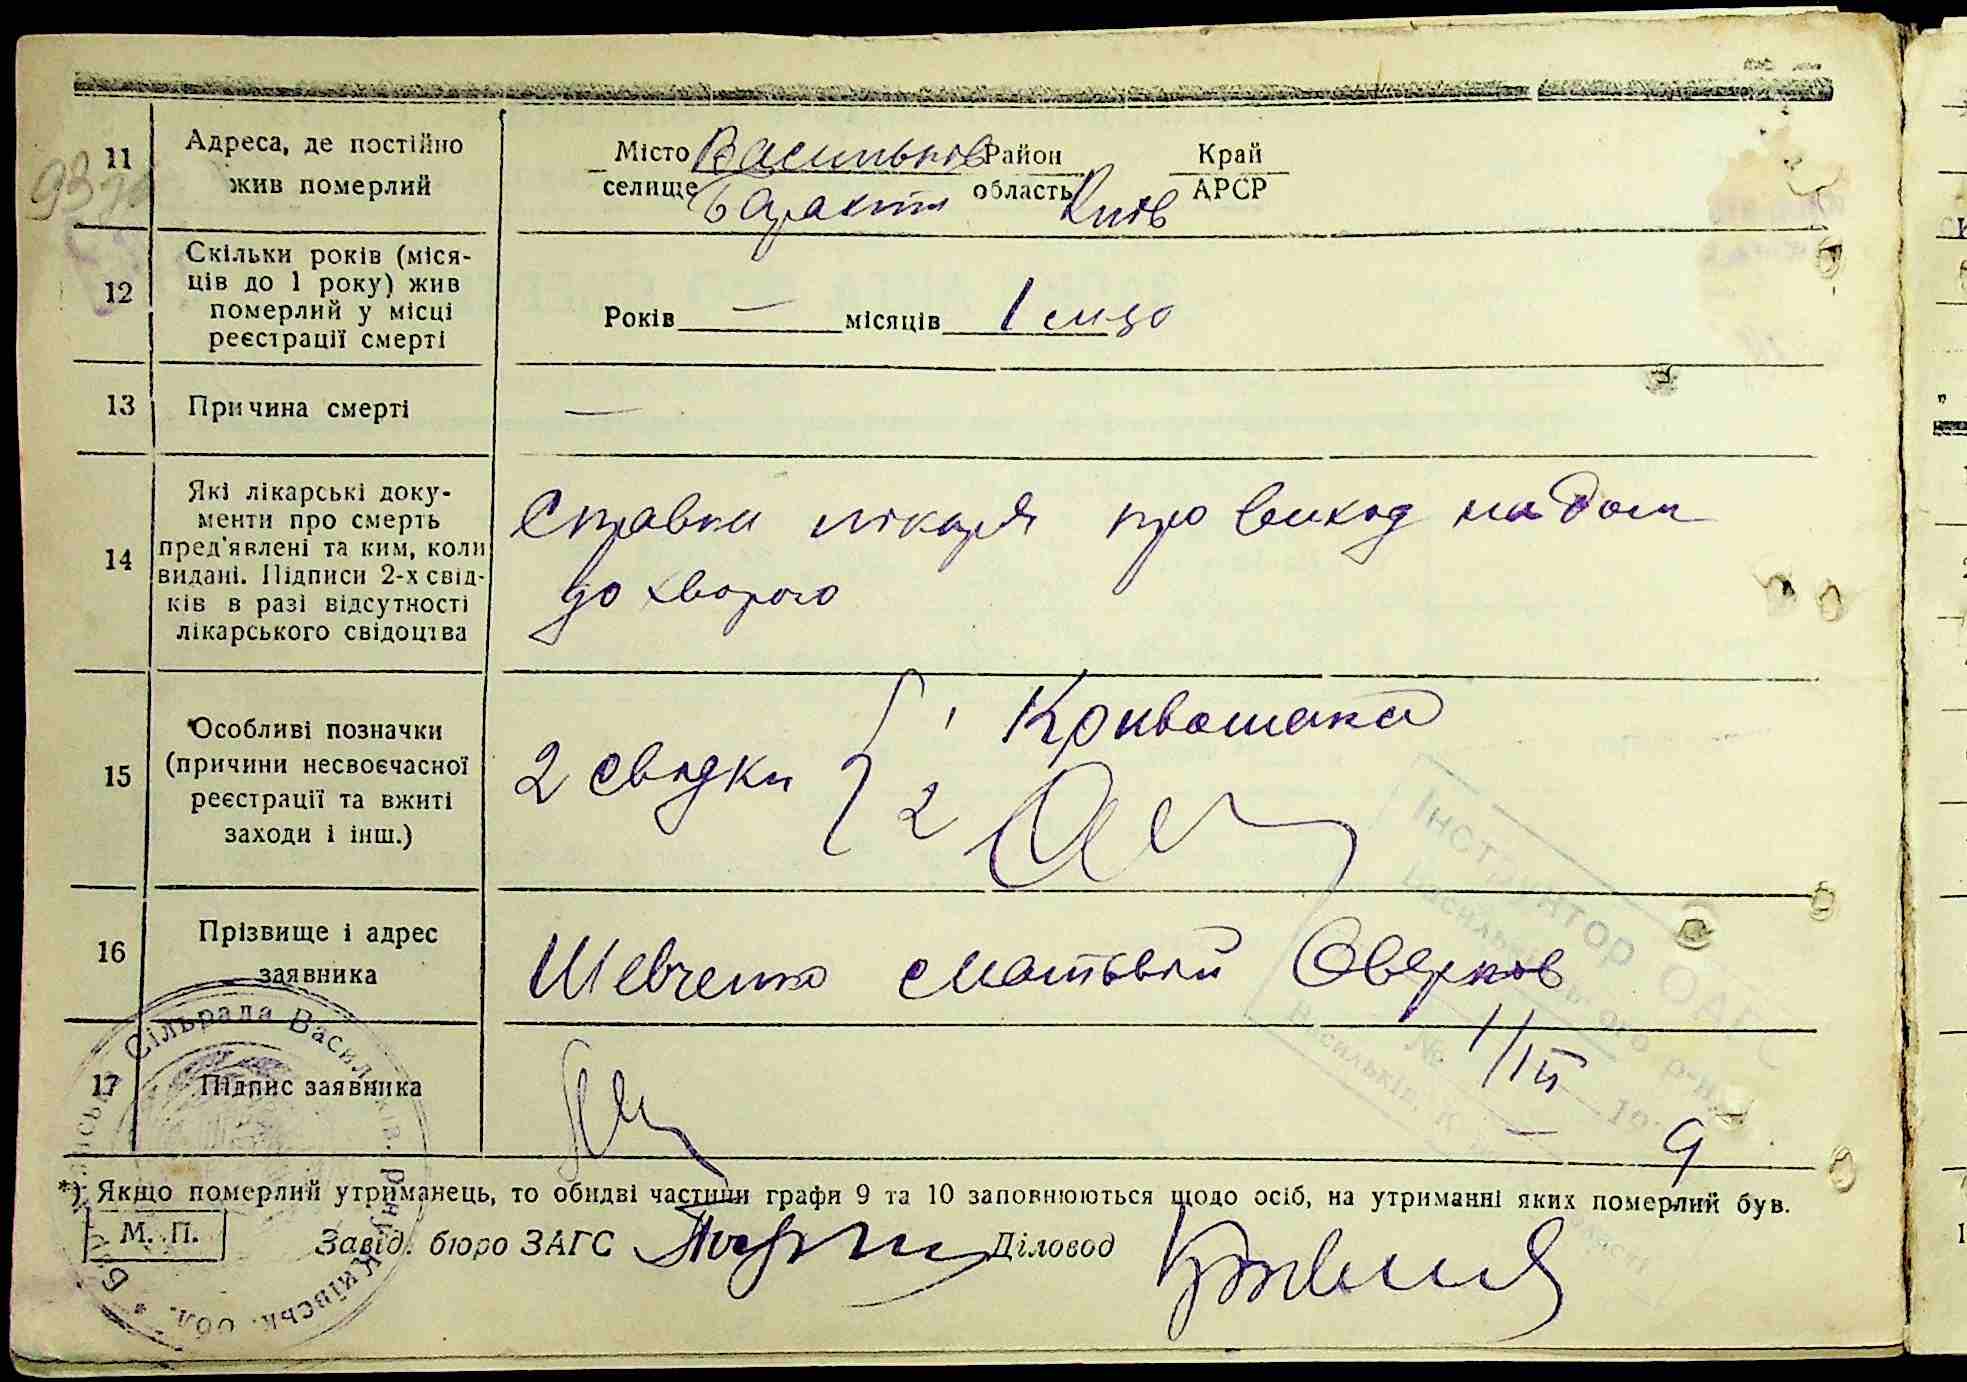 11
Адреса, де постійно
жив померлий
Місто Васильків Район Край
селище Барахти область Київ АРСР
12
Скільки років (міся-
ців до 1 року) жив
померлий у місці
реєстрації смерті
Років — місяців 1
13
Причина смерті
—
14
Які лікарські доку-
менти про смерть
пред'явлені та ким, коли
видані. Підписи 2-х свід-
ків в разі відсутності
лікарського свідоцтва
Справка лікаря про виход на дом
до хворого
15
Особливі позначки
(причини несвоєчасної
реєстрації та вжиті
заходи і інш.)
2 свідки
1 Кривошака
2
16
Прізвище і адрес
заявника
Шевченко Матвій Оверков
17
Підпис заявника
Інструктор ОАГС
№
*) Якщо померлий утриманець, то обидві частини графи 9 та 10 заповнюються щодо осіб, на утриманні яких померлий був.
М. П.
Завід. бюро ЗАГС
Діловод
Сільрада Васильків. р-ну Київськ. обл.
9